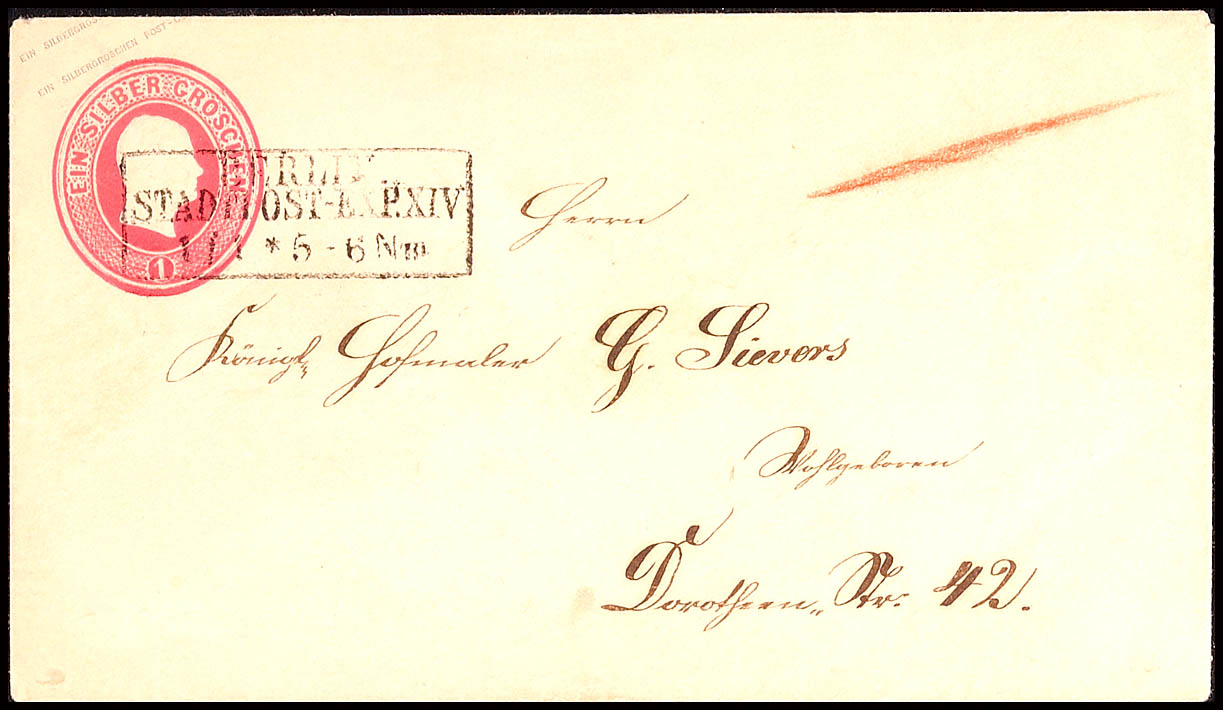 EIN SILBERGROS
EIN SILBERGROSCHEN POST-C
EIN SILBER GROSCHEN
1
BERLIN
STADTPOST-EXP.XIV
1 * 5 - 6 Nm
Herrn
Königl. Hofmaler G. Sievers
Wohlgeboren
Dorotheen Str. 42.